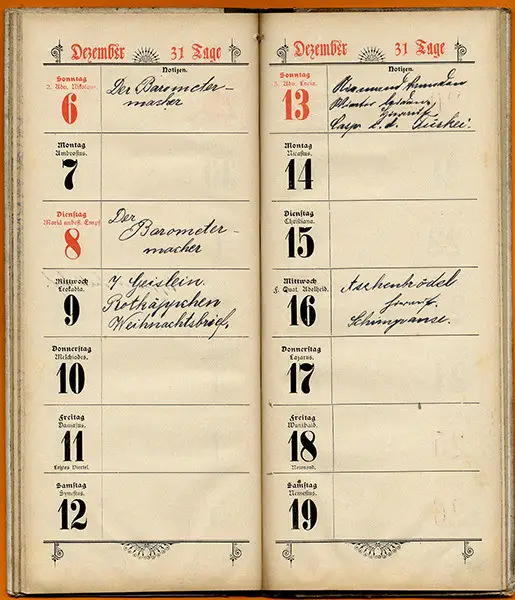 Dezember 31 Tage
Notizen.
Sonntag
2. Adv. Nikolaus.
6
Der Barometer-
macher
Montag
Ambrosius.
7
Dienstag
Mariä unbefl. Empf.
8
Der
Barometer-
macher
Mittwoch
Leokadia.
9
7 Geislein.
Rotkäppchen
Weihnachtsbrief,
Donnerstag
Melchiades.
10
Freitag
Damasus.
11
Letztes Viertel.
Samstag
Synesius.
12
Dezember 31 Tage
Notizen.
Sonntag
3. Adv. Lucia.
13
hierauf
Casp. i. d. Türkei.
Montag
Nicasius.
14
Dienstag
Christiana.
15
Mittwoch
F. Quat. Adelheid.
16
Aschenbrödel
hierauf
Schimpanse.
Donnerstag
Lazarus.
17
Freitag
Wunibald.
18
Neumond.
Samstag
Nemesius.
19